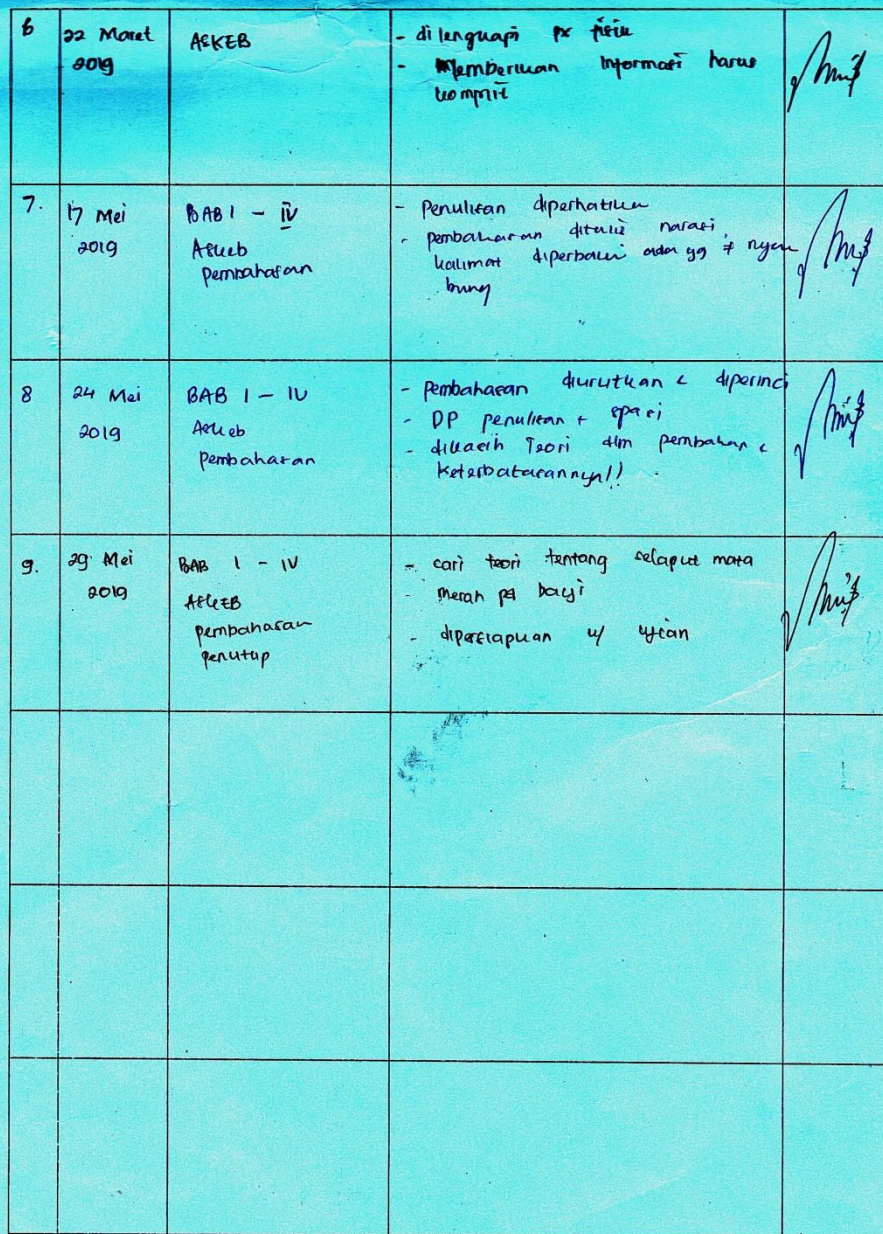 6
22 Maret
2019
ASKEB
- di lengkapi px fisik
- Memberikan Informasi harus
komplit
7.
17 Mei
2019
BAB I - IV
Askeb
Pembahasan
- Penulisan diperhatikan
- pembahasan ditulis narasi,
kalimat diperbaiki ada yg ≠ nyam
bung
8
24 Mei
2019
BAB I - IV
Askeb
Pembahasan
- Pembahasan diurutkan & diperinci
- DP penulisan + spasi
- dikasih Teori dlm pembahasan &
Keterbatasannya!!
9.
29 Mei
2019
BAB I - IV
ASKEB
pembahasan
penutup
- cari teori tentang selaput mata
- merah pd bayi
- dipersiapkan u/ ujian